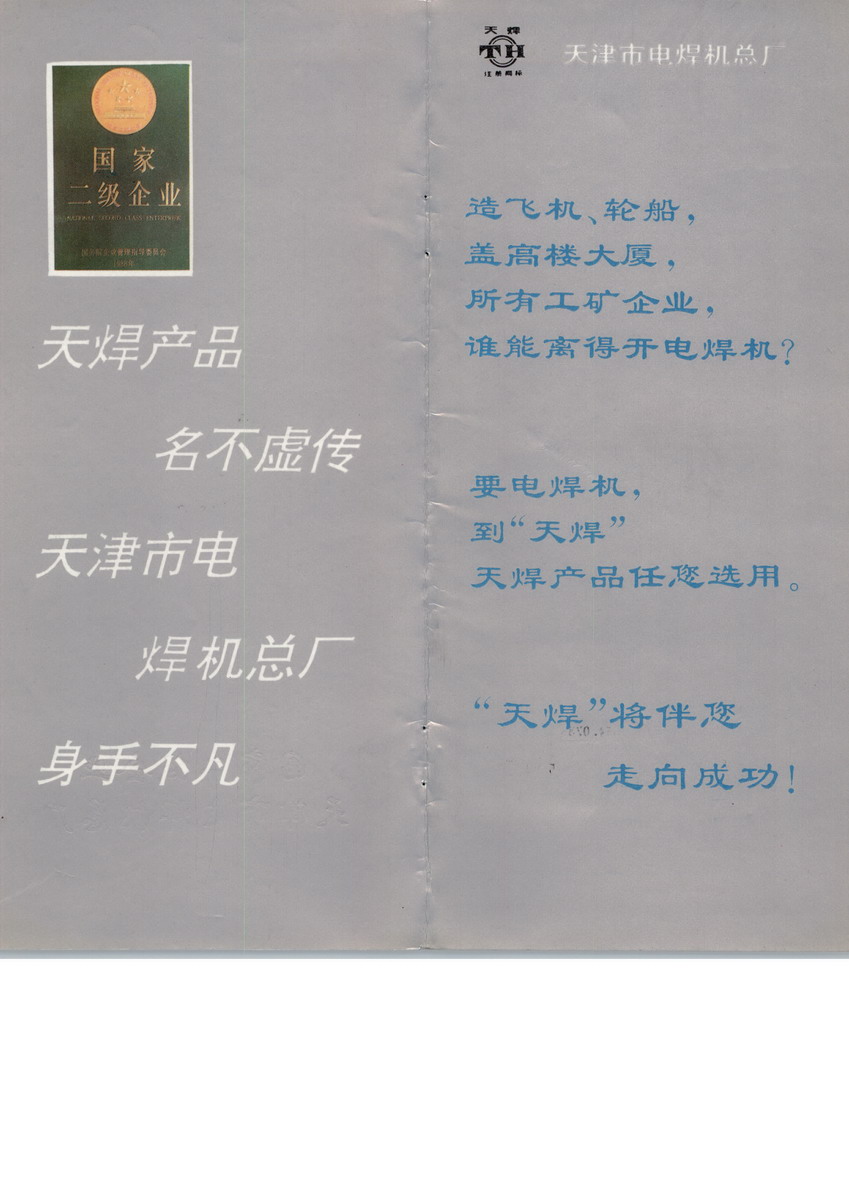 国家
二级企业
NATIONAL SECOND CLASS ENTERPRISE
国务院企业管理指导委员会
天焊产品
名不虚传
天津市电
焊机总厂
身手不凡
天焊
TH
注册商标
天津市电焊机总厂
造飞机、轮船，
盖高楼大厦，
所有工矿企业，
谁能离得开电焊机？
要电焊机，
到“天焊”
天焊产品任您选用。
“天焊”将伴您
走向成功！